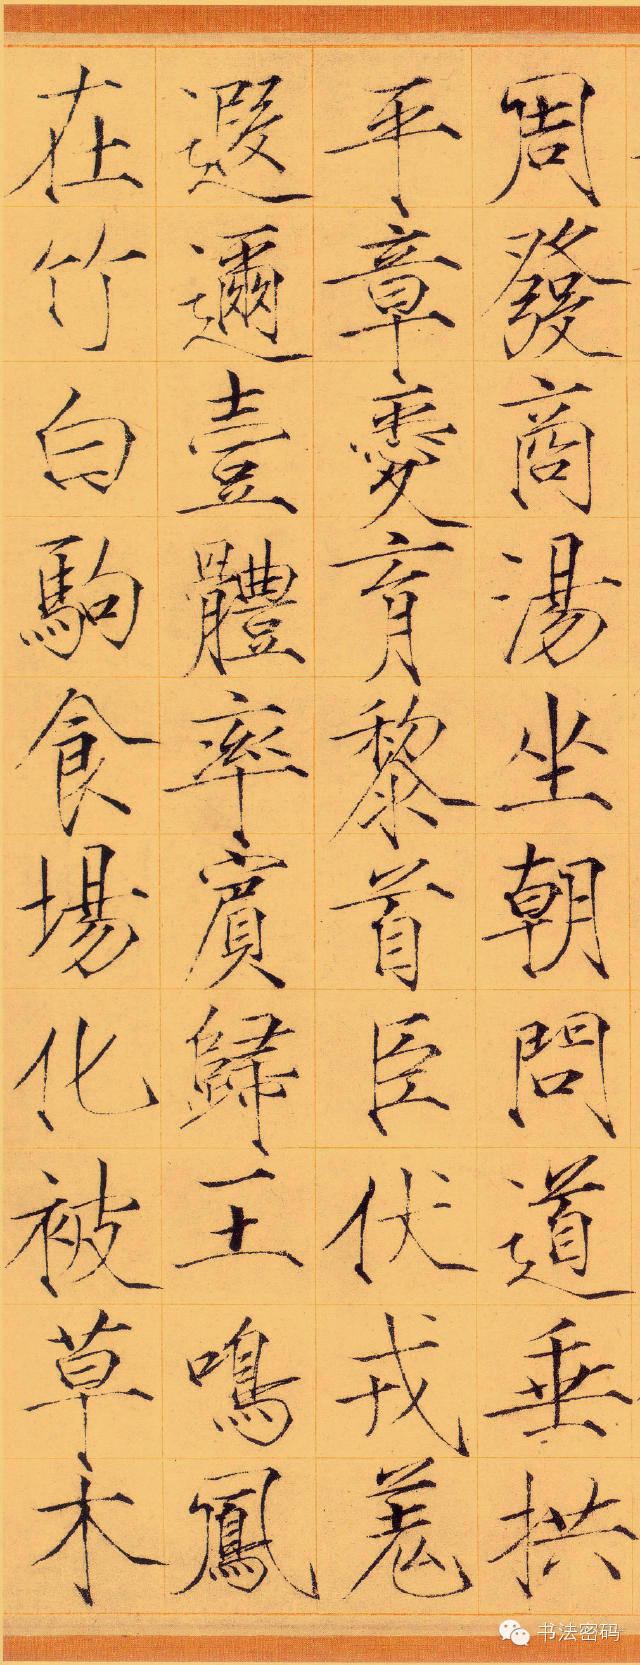 周發商湯坐朝問道垂拱
平章愛育黎首臣伏戎羌
遐邇壹體率賓歸王鳴鳳
在竹白駒食場化被草木
书法密码